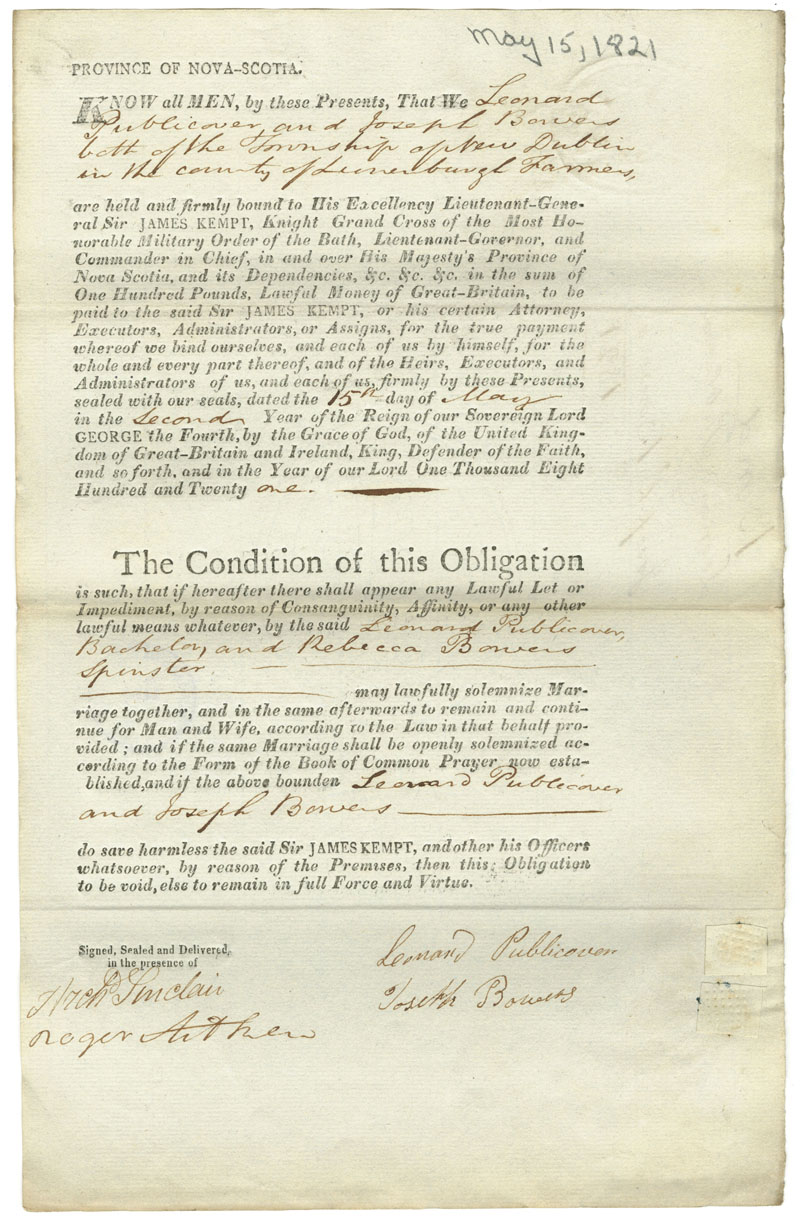 May 15, 1821
PROVINCE OF NOVA-SCOTIA.
KNOW all MEN, by these Presents, That We Leonard
Publicover, and Joseph Bowers
both of the Township of New Dublin
in the county of Lunenburgh Farmers,
are held and firmly bound to His Excellency Lieutenant-Gene-
ral Sir JAMES KEMPT, Knight Grand Cross of the Most Ho-
norable Military Order of the Bath, Lieutenant-Governor, and
Commander in Chief, in and over His Majesty's Province of
Nova Scotia, and its Dependencies, &c. &c. &c. in the sum of
One Hundred Pounds, Lawful Money of Great-Britain, to be
paid to the said Sir JAMES KEMPT, or his certain Attorney,
Executors, Administrators, or Assigns, for the true payment
whereof we bind ourselves, and each of us by himself, for the
whole and every part thereof, and of the Heirs, Executors, and
Administrators of us, and each of us, firmly by these Presents,
sealed with our seals, dated the 15th day of May
in the Second Year of the Reign of our Sovereign Lord
GEORGE the Fourth, by the Grace of God, of the United King-
dom of Great-Britain and Ireland, King, Defender of the Faith,
and so forth, and in the Year of our Lord One Thousand Eight
Hundred and Twenty one.
The Condition of this Obligation
is such, that if hereafter there shall appear any Lawful Let or
Impediment, by reason of Consanguinity, Affinity, or any other
lawful means whatever, by the said Leonard Publicover,
Bachelor, and Rebecca Bowers
Spinster.
may lawfully solemnize Mar-
riage together, and in the same afterwards to remain and conti-
nue for Man and Wife, according to the Law in that behalf pro-
vided; and if the same Marriage shall be openly solemnized ac-
cording to the Form of the Book of Common Prayer now esta-
blished, and if the above bounden Leonard Publicover
and Joseph Bowers
do save harmless the said Sir JAMES KEMPT, and other his Officers
whatsoever, by reason of the Premises, then this Obligation
to be void, else to remain in full Force and Virtue.
Signed, Sealed and Delivered,
in the presence of
Leonard Publicover
Archd Sinclair
Joseth Bowers
Roger Aitken